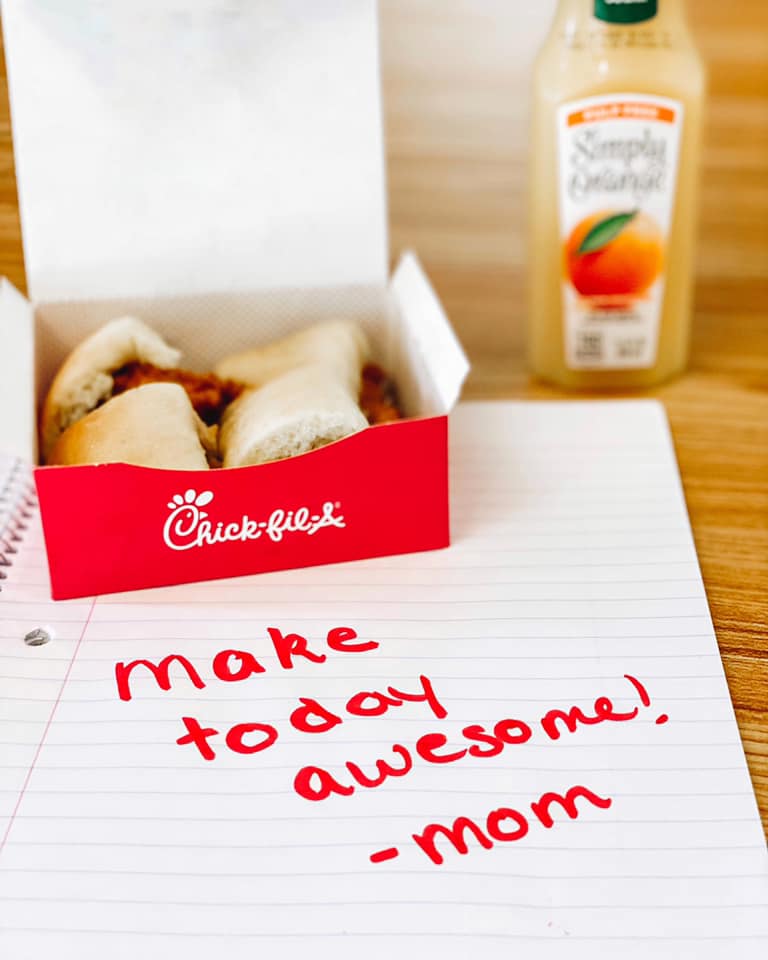 PULP FREE
Simply
Orange
Chick-fil-A®
make
today
awesome!
-mom